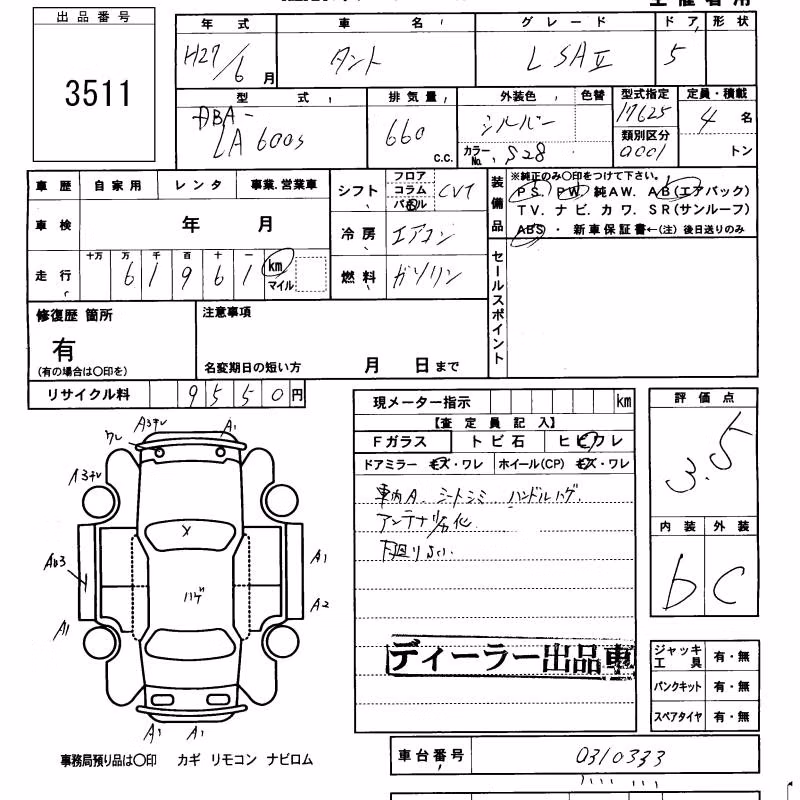 出品番号
3511
年式 車名 グレード ドア 形状
H27/6月 タント L SAⅡ 5
型式 排気量 外装色 色替 型式指定 定員・積載
DBA-
LA600S 660 c.c. シルバー 17625 4名
カラーNo. S28 類別区分 0001 トン
車歴 自家用 レンタ 事業.営業車
車検 年 月
走行 十万 万 千 百 十 一
61961 km マイル
シフト フロア コラム パネル CVT
冷房 エアコン
燃料 ガソリン
装備品
※純正のみ〇印をつけて下さい。
PS. PW. 純AW. AB(エアバック)
TV. ナビ. カワ. SR(サンルーフ)
ABS・ 新車保証書←(注) 後日送りのみ
セールスポイント
修復歴 箇所
有
(有の場合は〇印を)
注意事項
名変期日の短い方 月 日まで
リサイクル料 9550円
現メーター指示 km
【査定員記入】
Fガラス トビ石 ヒビワレ
ドアミラー キズ・ワレ ホイール(CP) キズ・ワレ
車内A. シートシミ ハンドルハゲ.
アンテナ劣化
下回りさい.
ディーラー出品車
評価点
3.5
内装 外装
b C
ジャッキ工具 有・無
パンクキット 有・無
スペアタイヤ 有・無
A3テレ
ワレ
A1
A3テレ
X
A1
ハゲ
A2
A1
A1 A1
事務局預り品は〇印 カギ リモコン ナビロム
車台番号 0310333